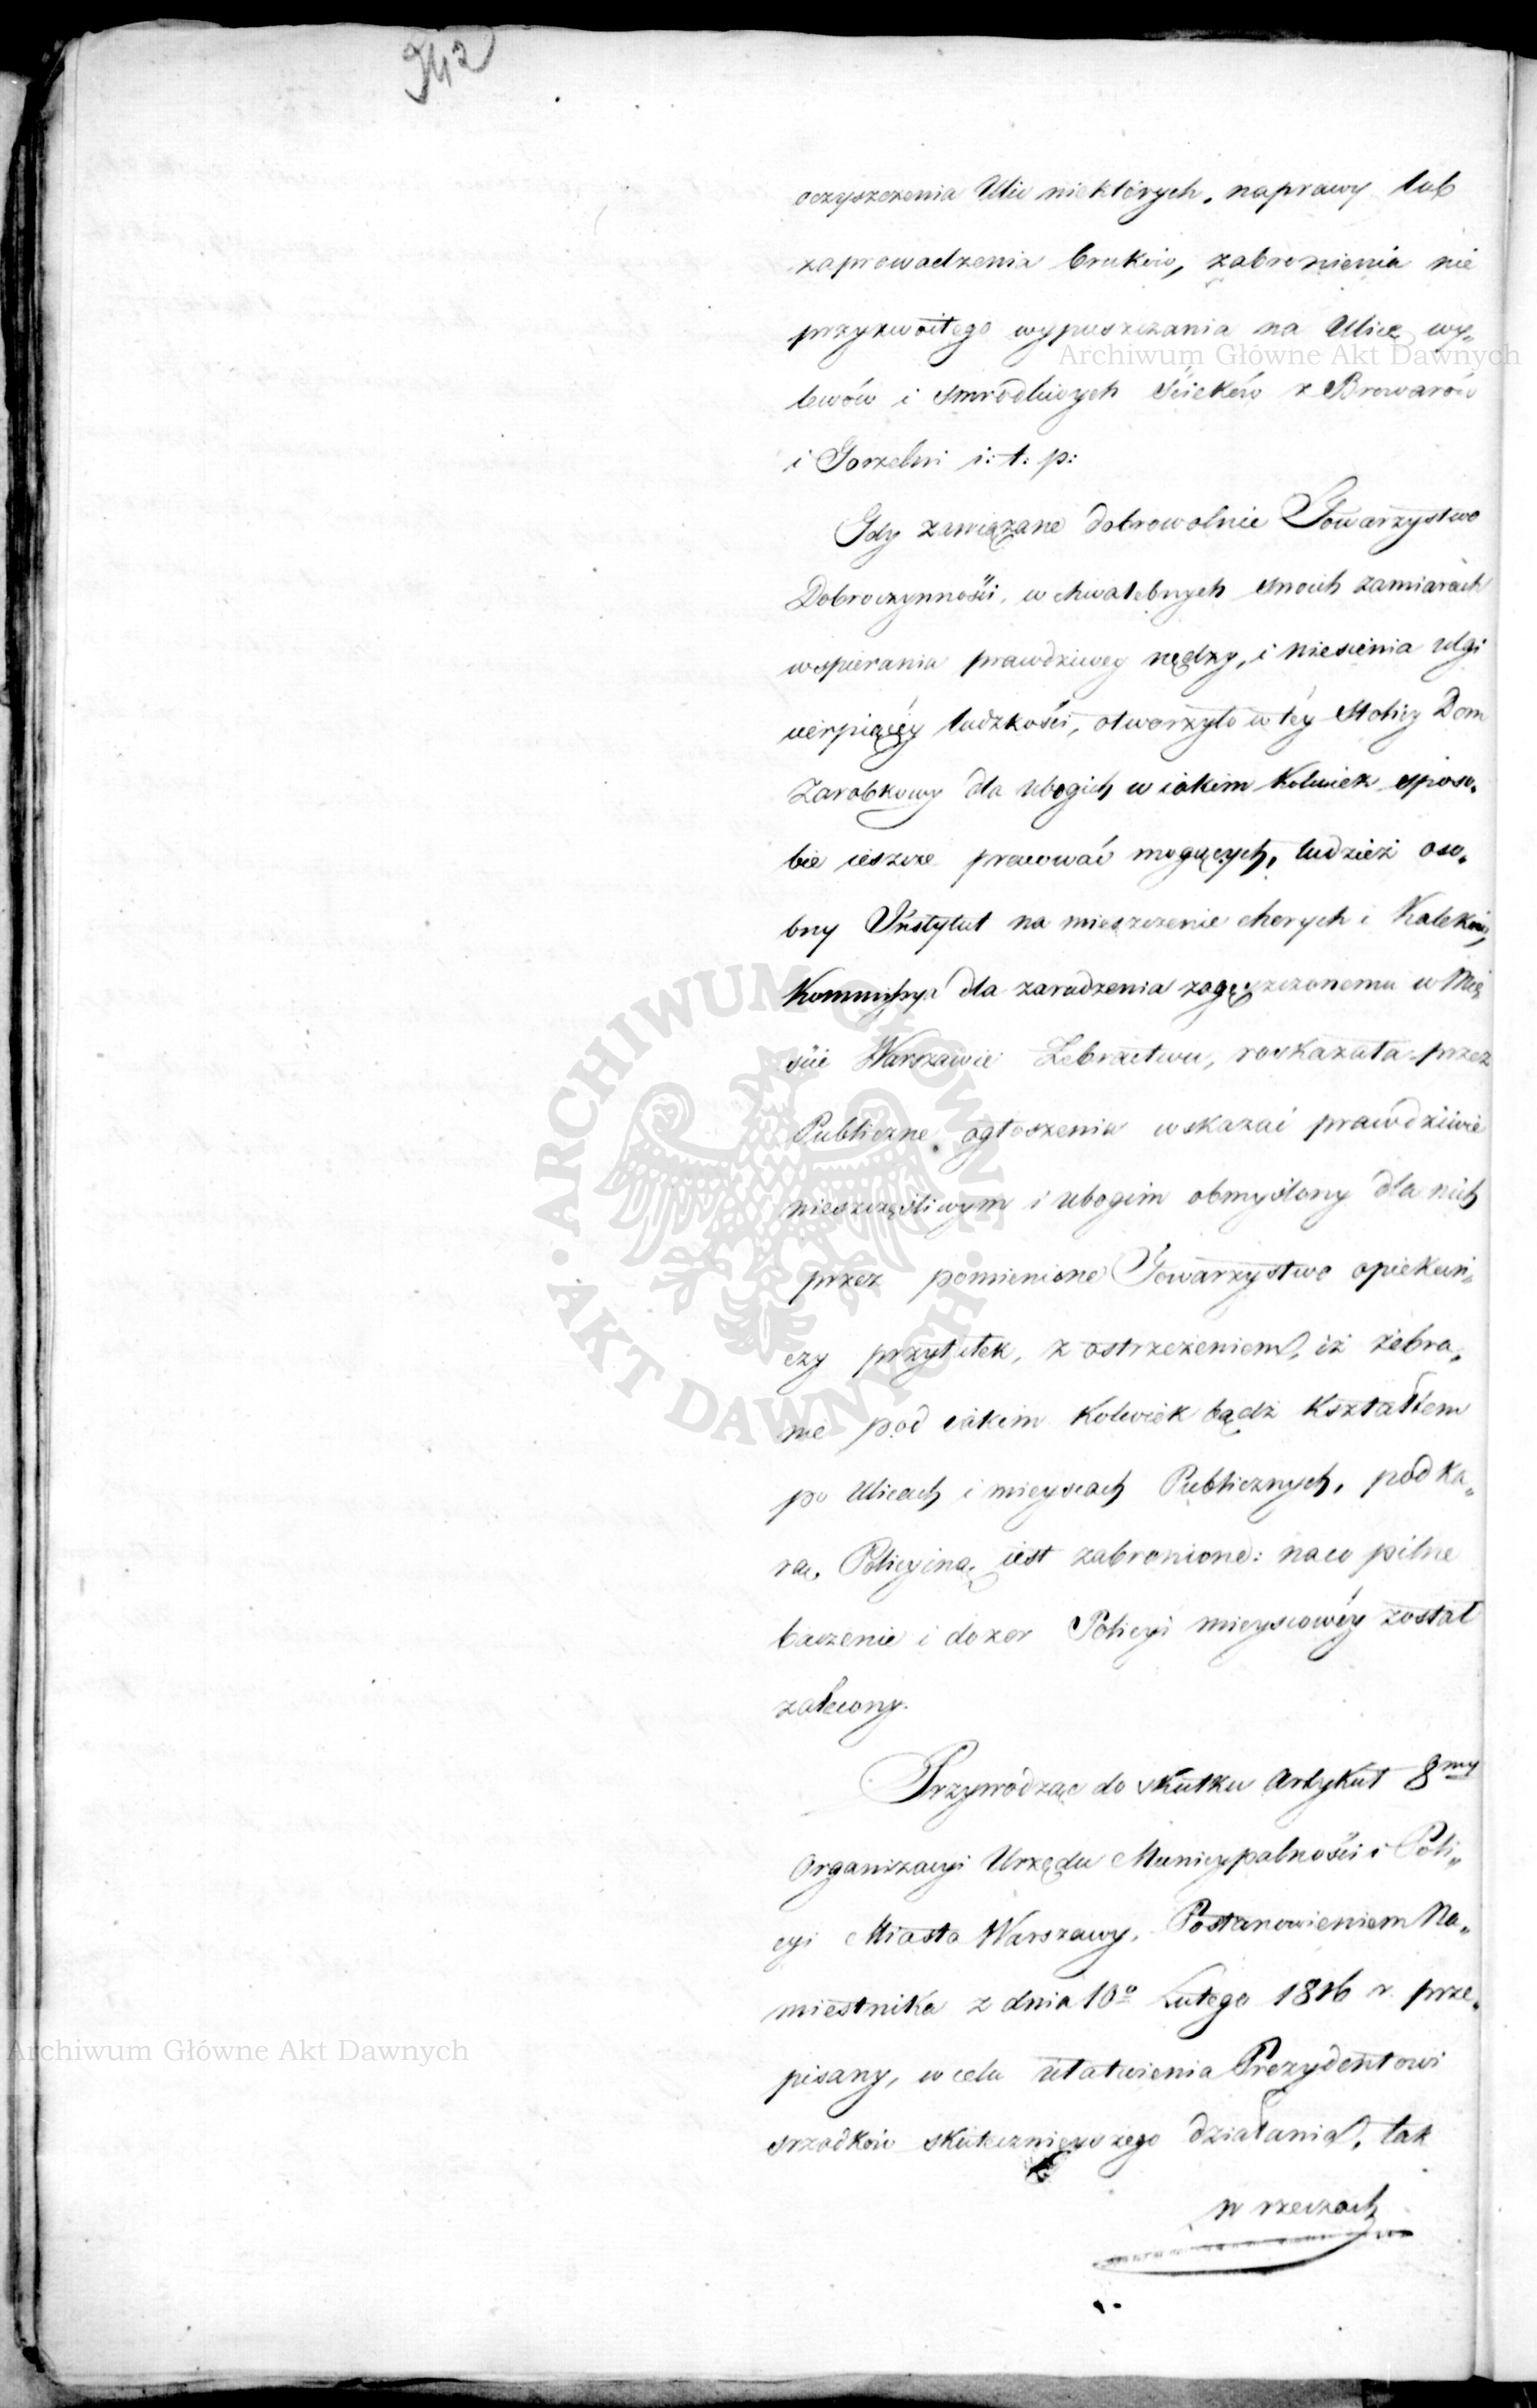 942
oczyszczenia Ulic niektórych, naprawy lub
zaprowadzenia bruków, zabronienia nie
przyzwoitego wypuszczania na Ulice wy„
Archiwum Główne Akt Dawnych
lewów i smrodliwych ścieków z Browarów
i Gorzelni i: t: p:
Gdy zawiązane dobrowolnie Towarzystwo
Dobroczynności, w chwalebnych swoich zamiarach
wspierania prawdziwey nędzy, i niesienia ulgi
cierpiącéy ludzkości, otworzyło w téy Stolicy Dom
Zarobkowy dla ubogich w iakim kolwiek sposo„
bie ieszcze pracować mogących, tudzież oso„
bny Instytut na mieszczenie chorych i Kaleków,
Kommissya dla zaradzenia zagęszczonemu w Mie
ście Warszawie Żebractwu, roskazała przez
Publiczne ogłoszenia wskazać prawdziwie
nieszczęśliwym i ubogim obmyślony dla nich
przez pomienione Towarzystwo opiekuń„
czy przytułek, z ostrzeżeniem, iż żebra„
nie pod iakim kolwiek bądź kształtem
po Ulicach i mieyscach Publicznych, pod ka„
rą Policyiną iest zabronione: na co pilne
baczenie i dozor Policyi mieyscowéy został
zalecony.
Przywodząc do skutku Artykuł 8my
Organizacyi Urzędu Municypalności i Poli„
cyi Miasta Warszawy, Postanowieniem Na„
miestnika z dnia 10o Lutego 1816 r. prze„
Archiwum Główne Akt Dawnych
pisany, w celu ułatwienia Prezydentowi
srzodków skutecznieyszego działania, tak
w rzeczach
ARCHIWUM GŁÓWNE · AKT DAWNYCH ·